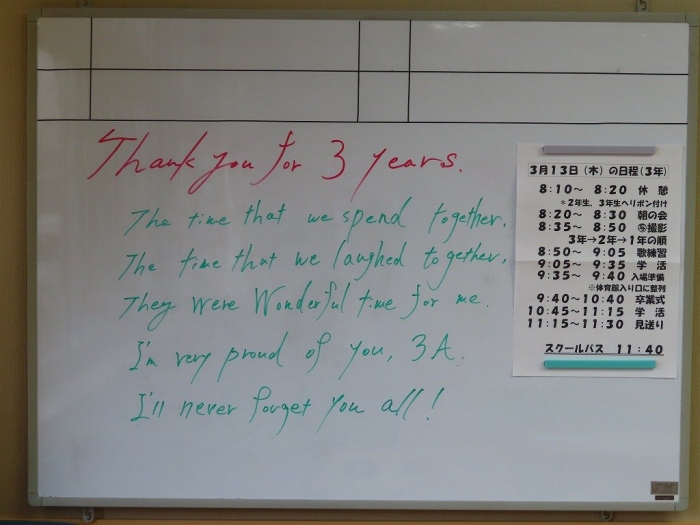 Thank you for 3 years.
The time that we spend together,
The time that we laughed together,
They were Wonderful time for me.
I'm very proud of you, 3A.
I'll never forget you all!
3月13日（木）の日程（3年）
8:10～ 8:20 休 憩
＊2年生、3年生へリボン付け
8:20～ 8:30 朝の会
8:35～ 8:50 撮影
3年→2年→1年の順
8:50～ 9:05 歌練習
9:05～ 9:35 学 活
9:35～ 9:40 入場準備
※体育館入り口に整列
9:40～10:40 卒業式
10:45～11:15 学 活
11:15～11:30 見送り
スクールバス 11:40